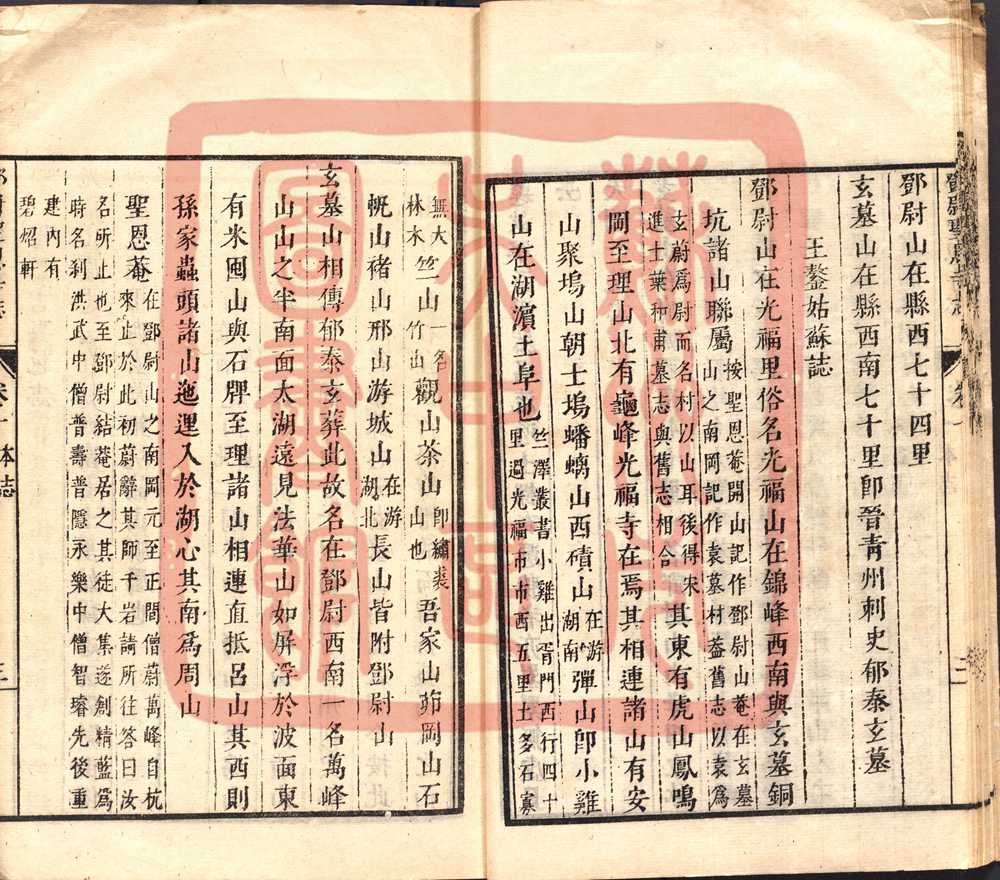 鄧尉山在縣西七十四里
玄墓山在縣西南七十里卽晉青州刺史郁泰玄墓
王鏊姑蘇誌
鄧尉山在光福里俗名光福山在錦峰西南與玄墓銅
坑諸山聯屬
按聖恩菴開山記作鄧尉山菴在玄墓
山之南岡記作袁墓村葢舊志以袁爲
玄蔚爲尉而名村以山耳後得宋
進士葉种甫墓志與舊志相合
其東有虎山鳳鳴
岡至理山北有龜峰光福寺在焉其相連諸山有安
山聚塢山朝士塢蟠螭山西磧山
在游
湖南
彈山卽小雞
山在湖濵土阜也
竺澤叢書小雞出胥門西行四十
里過光福市市西五里土多石寡
無大
林木
竺山
一名
竹山
觀山茶山
卽繡裘
山也
吾家山茆岡山石
帆山褚山邢山游城山
在游
湖北
長山皆附鄧尉山
玄墓山相傳郁泰玄葬此故名在鄧尉西南一名萬峰
山山之半南面太湖遠見法華山如屏浮於波面東
有米囤山與石牌至理諸山相連直抵呂山其西則
孫家蟲頭諸山迤邐入於湖心其南爲周山
聖恩菴
在鄧尉山之南岡元至正間僧蔚萬峰自杭
來止於此初蔚辭其師千岩請所往答曰汝
名所止也至鄧尉結菴居之其徒大集遂創精藍爲
時名刹洪武中僧普壽普隱永樂中僧智璿先後重
建內有
碧炤軒